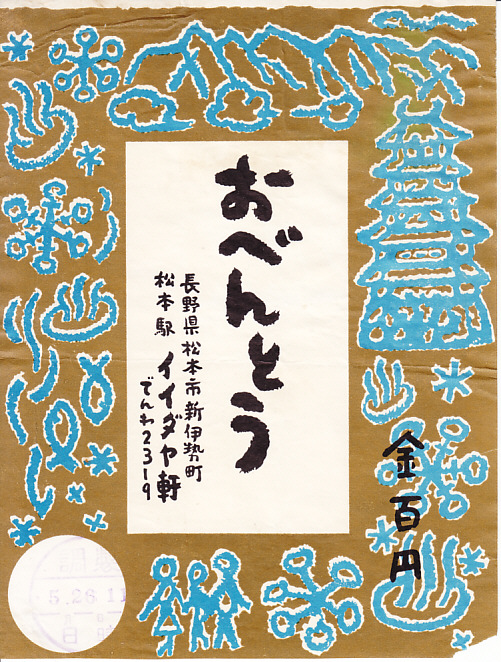 おべんとう
長野県松本市新伊勢町
松本駅 イイダヤ軒
でんわ2319
金百円
5.26.11